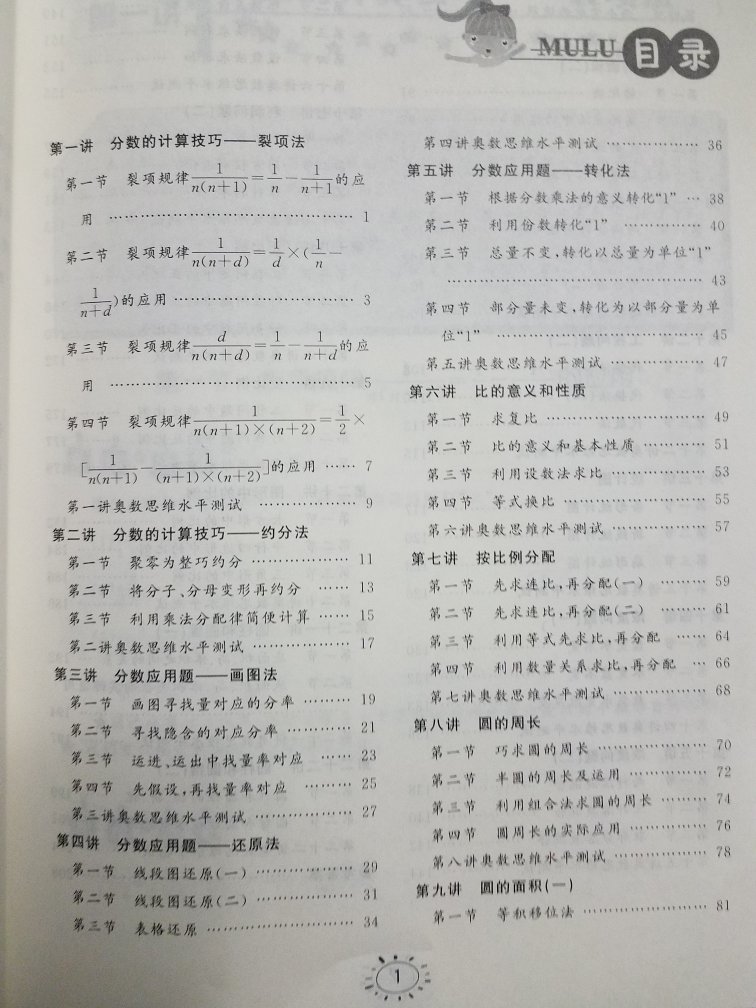 MULU 目录
第一讲 分数的计算技巧——裂项法
第一节 裂项规律1/n(n+1)=1/n-1/n+1的应
用 …… 1
第二节 裂项规律1/n(n+d)=1/d×(1/n-
1/n+d)的应用 …… 3
第三节 裂项规律d/n(n+d)=1/n-1/n+d的应
用 …… 5
第四节 裂项规律1/n(n+1)×(n+2)=1/2×
[1/n(n+1)-1/(n+1)×(n+2)]的应用 …… 7
第一讲奥数思维水平测试 …… 9
第二讲 分数的计算技巧——约分法
第一节 聚零为整巧约分 …… 11
第二节 将分子、分母变形再约分 …… 13
第三节 利用乘法分配律简便计算 …… 15
第二讲奥数思维水平测试 …… 17
第三讲 分数应用题——画图法
第一节 画图寻找量对应的分率 …… 19
第二节 寻找隐含的对应分率 …… 21
第三节 运进、运出中找量率对应 …… 23
第四节 先假设,再找量率对应 …… 25
第三讲奥数思维水平测试 …… 27
第四讲 分数应用题——还原法
第一节 线段图还原(一) …… 29
第二节 线段图还原(二) …… 31
第三节 表格还原 …… 34
第四讲奥数思维水平测试 …… 36
第五讲 分数应用题——转化法
第一节 根据分数乘法的意义转化“1” … 38
第二节 利用份数转化“1” …… 40
第三节 总量不变,转化以总量为单位“1”
…… 43
第四节 部分量未变,转化为以部分量为单
位“1” …… 45
第五讲奥数思维水平测试 …… 47
第六讲 比的意义和性质
第一节 求复比 …… 49
第二节 比的意义和基本性质 …… 51
第三节 利用设数法求比 …… 53
第四节 等式换比 …… 55
第六讲奥数思维水平测试 …… 57
第七讲 按比例分配
第一节 先求连比,再分配(一) …… 59
第二节 先求连比,再分配(二) …… 61
第三节 利用等式先求比,再分配 …… 64
第四节 利用数量关系求比,再分配 … 66
第七讲奥数思维水平测试 …… 68
第八讲 圆的周长
第一节 巧求圆的周长 …… 70
第二节 半圆的周长及运用 …… 72
第三节 利用组合法求圆的周长 …… 74
第四节 圆周长的实际应用 …… 76
第八讲奥数思维水平测试 …… 78
第九讲 圆的面积(一)
第一节 等积移位法 …… 81
1